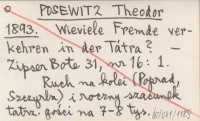 POSEWITZ Theodor
1893. Wieviele Fremde ver-
kehren in der Tátra? —
Zipser Bote 31, nr 16: 1.
Ruch na kolei (Poprad,
Szczyrba) i roczny szacunek
tatrz. gości na 7-8 tys.